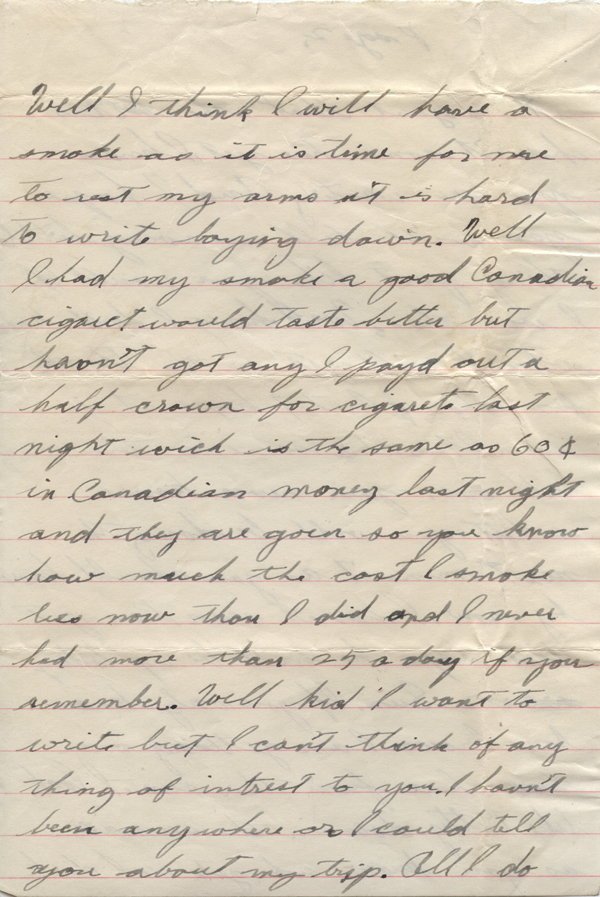 Well I think I will have a
smoke as it is time for me
to rest my arms it is hard
to write laying down. Well
I had my smoke a good Canadian
cigaret would taste better but
havn't got any I payd out a
half crown for cigarets last
night wich is the same as 60¢
in Canadian money last night
and they are goen so you know
how much the cost I smoke
less now than I did and I never
had more than 25 a day if you
remember. Well kid I want to
write but I can't think of any
thing of intrest to you. I havn't
been anywhere or I could tell
you about my trip. All I do